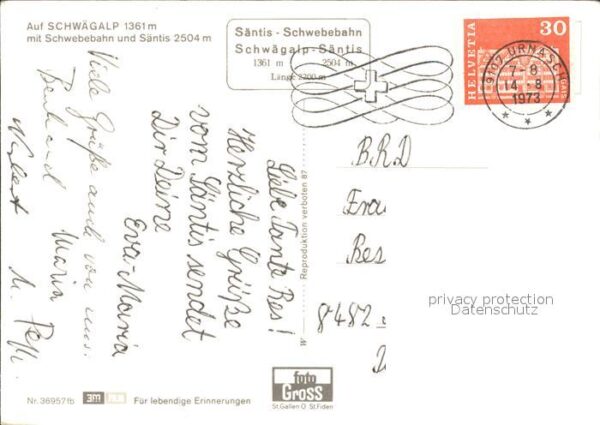 Auf SCHWÄGALP 1361 m
mit Schwebebahn und Säntis 2504 m
Säntis - Schwebebahn
Schwägalp - Säntis
1361 m 2504 m
Länge 2200 m
HELVETIA
30
9107 URNÄSCH
7-8
14-8
1973
Liebe Tante Res!
Herzliche Grüße
vom Säntis sendet
Dir Deine
Eva-Maria
Viele Grüße auch von uns.
Maria
B.R.D
Frau
Res
8482
privacy protection
Datenschutz
Reproduktion verboten 87
W
Nr. 36957fb
3m
Für lebendige Erinnerungen
foto
Gross
St.Gallen O St.Fiden